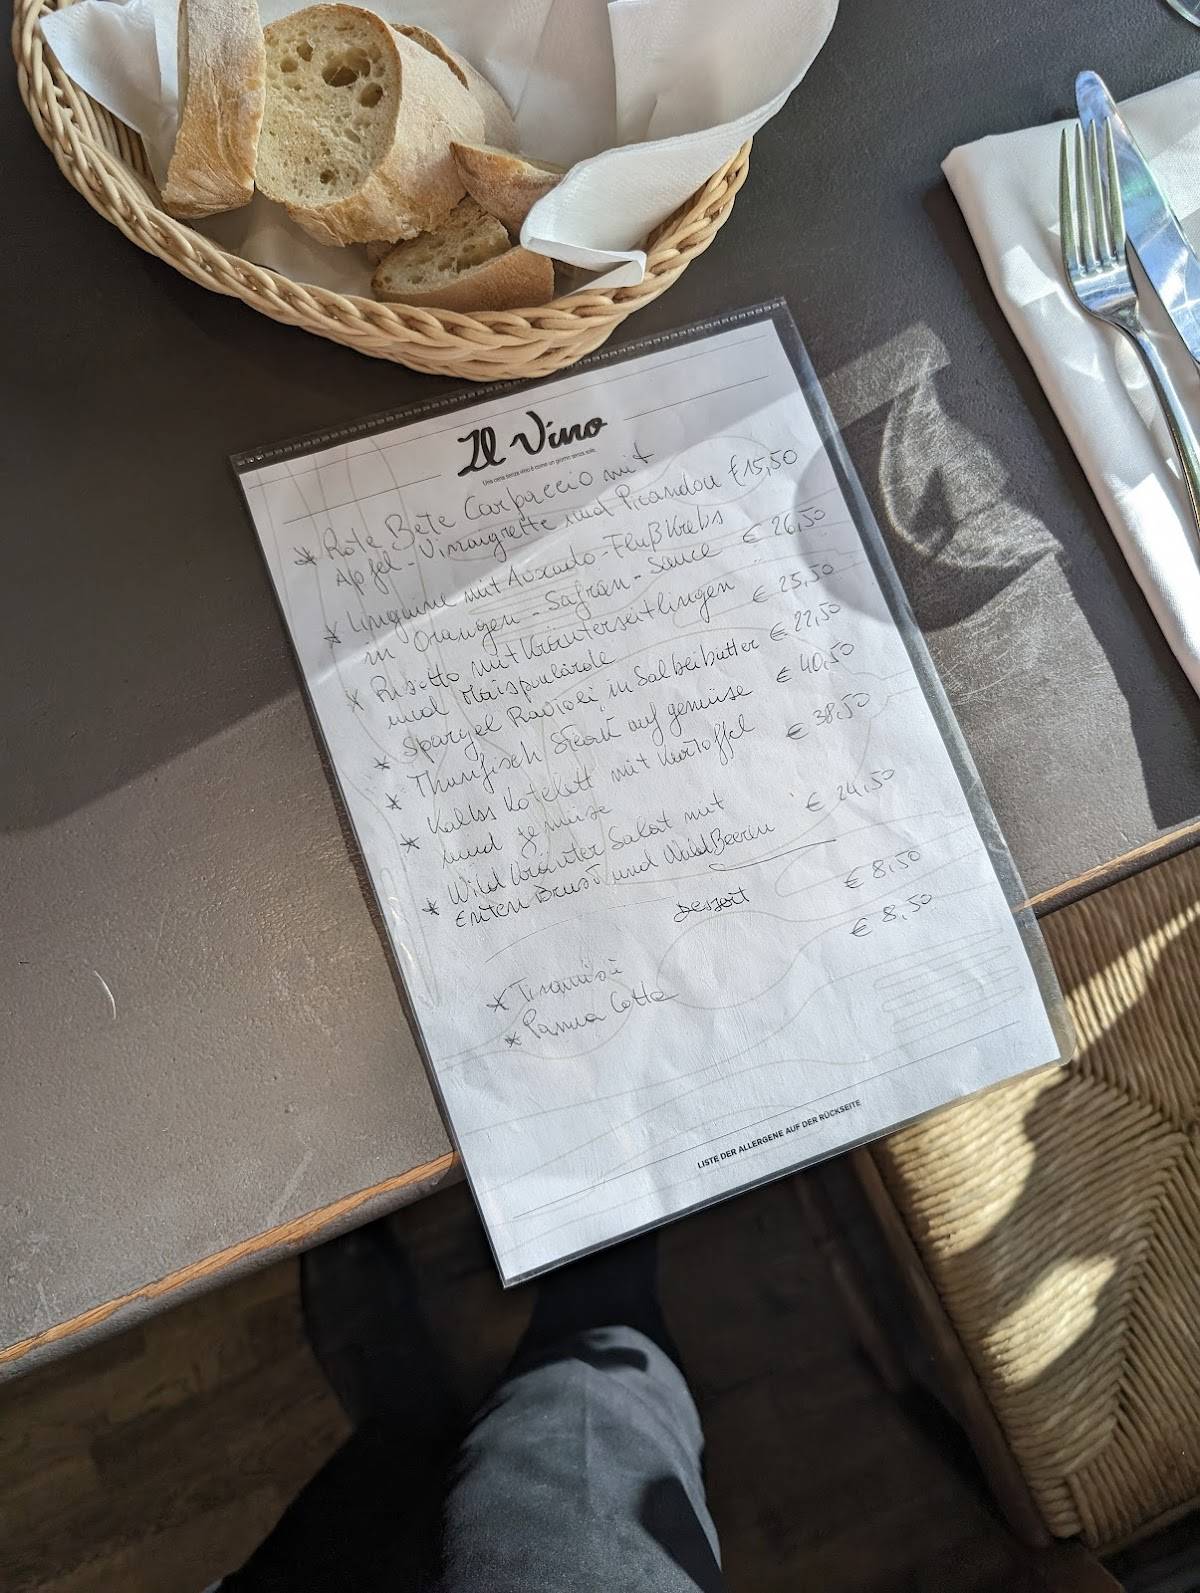 Il Vino
Una cena senza vino è come un giorno senza sole.
* Rote Bete Carpaccio mit
Apfel-Vinaigrette und Picandou €15,50
* Linguine mit Avocado-Flußkrebs
in Orangen-Safran-Sauce € 26,50
* Risotto mit Kräuterseitlingen
und Maispoularde € 25,50
* Spargel Ravioli in Salbeibutter € 22,50
* Thunfisch Steak auf gemüse € 40,50
* Kalbs Kotelett mit Kartoffel
und gemüse € 38,50
* Wild Kräuter Salat mit
Enten Brust und WildBeeren € 24,50
Dessert
* Tiramisù € 8,50
* Panna Cotta € 8,50
LISTE DER ALLERGENE AUF DER RÜCKSEITE